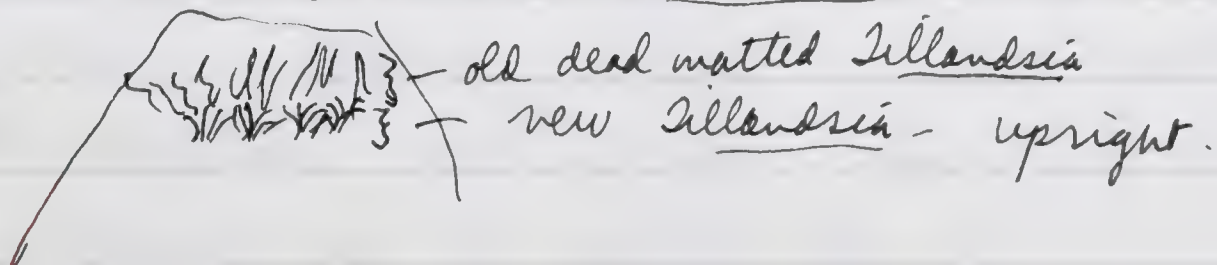 old dead matted Tillandsia
new Tillandsia - upright.